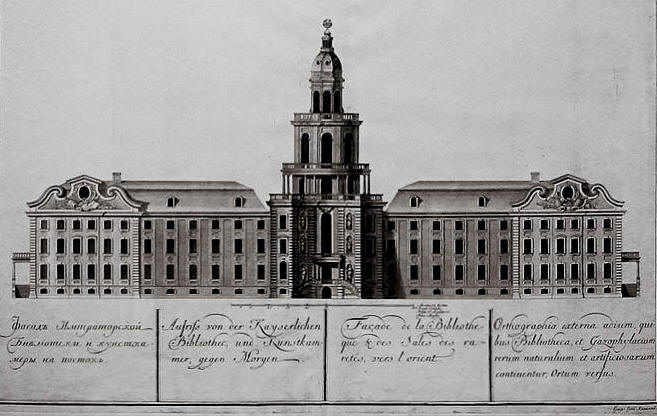 Фасадъ Императорской
Библиотеки и кунсткa-
меры на востокъ.
Aufriſs von der Kayserlichen
Bibliothec, und Kunstkam-
mer, gegen Morgen
Façade de la Bibliothe-
que & des Sales des ra-
retés, vers l'orient
Orthographia externa aedium, qui-
bus Bibliotheca, et Gazophylacium
rerum naturalium et artificiosarum
continentur, Ortum versus.